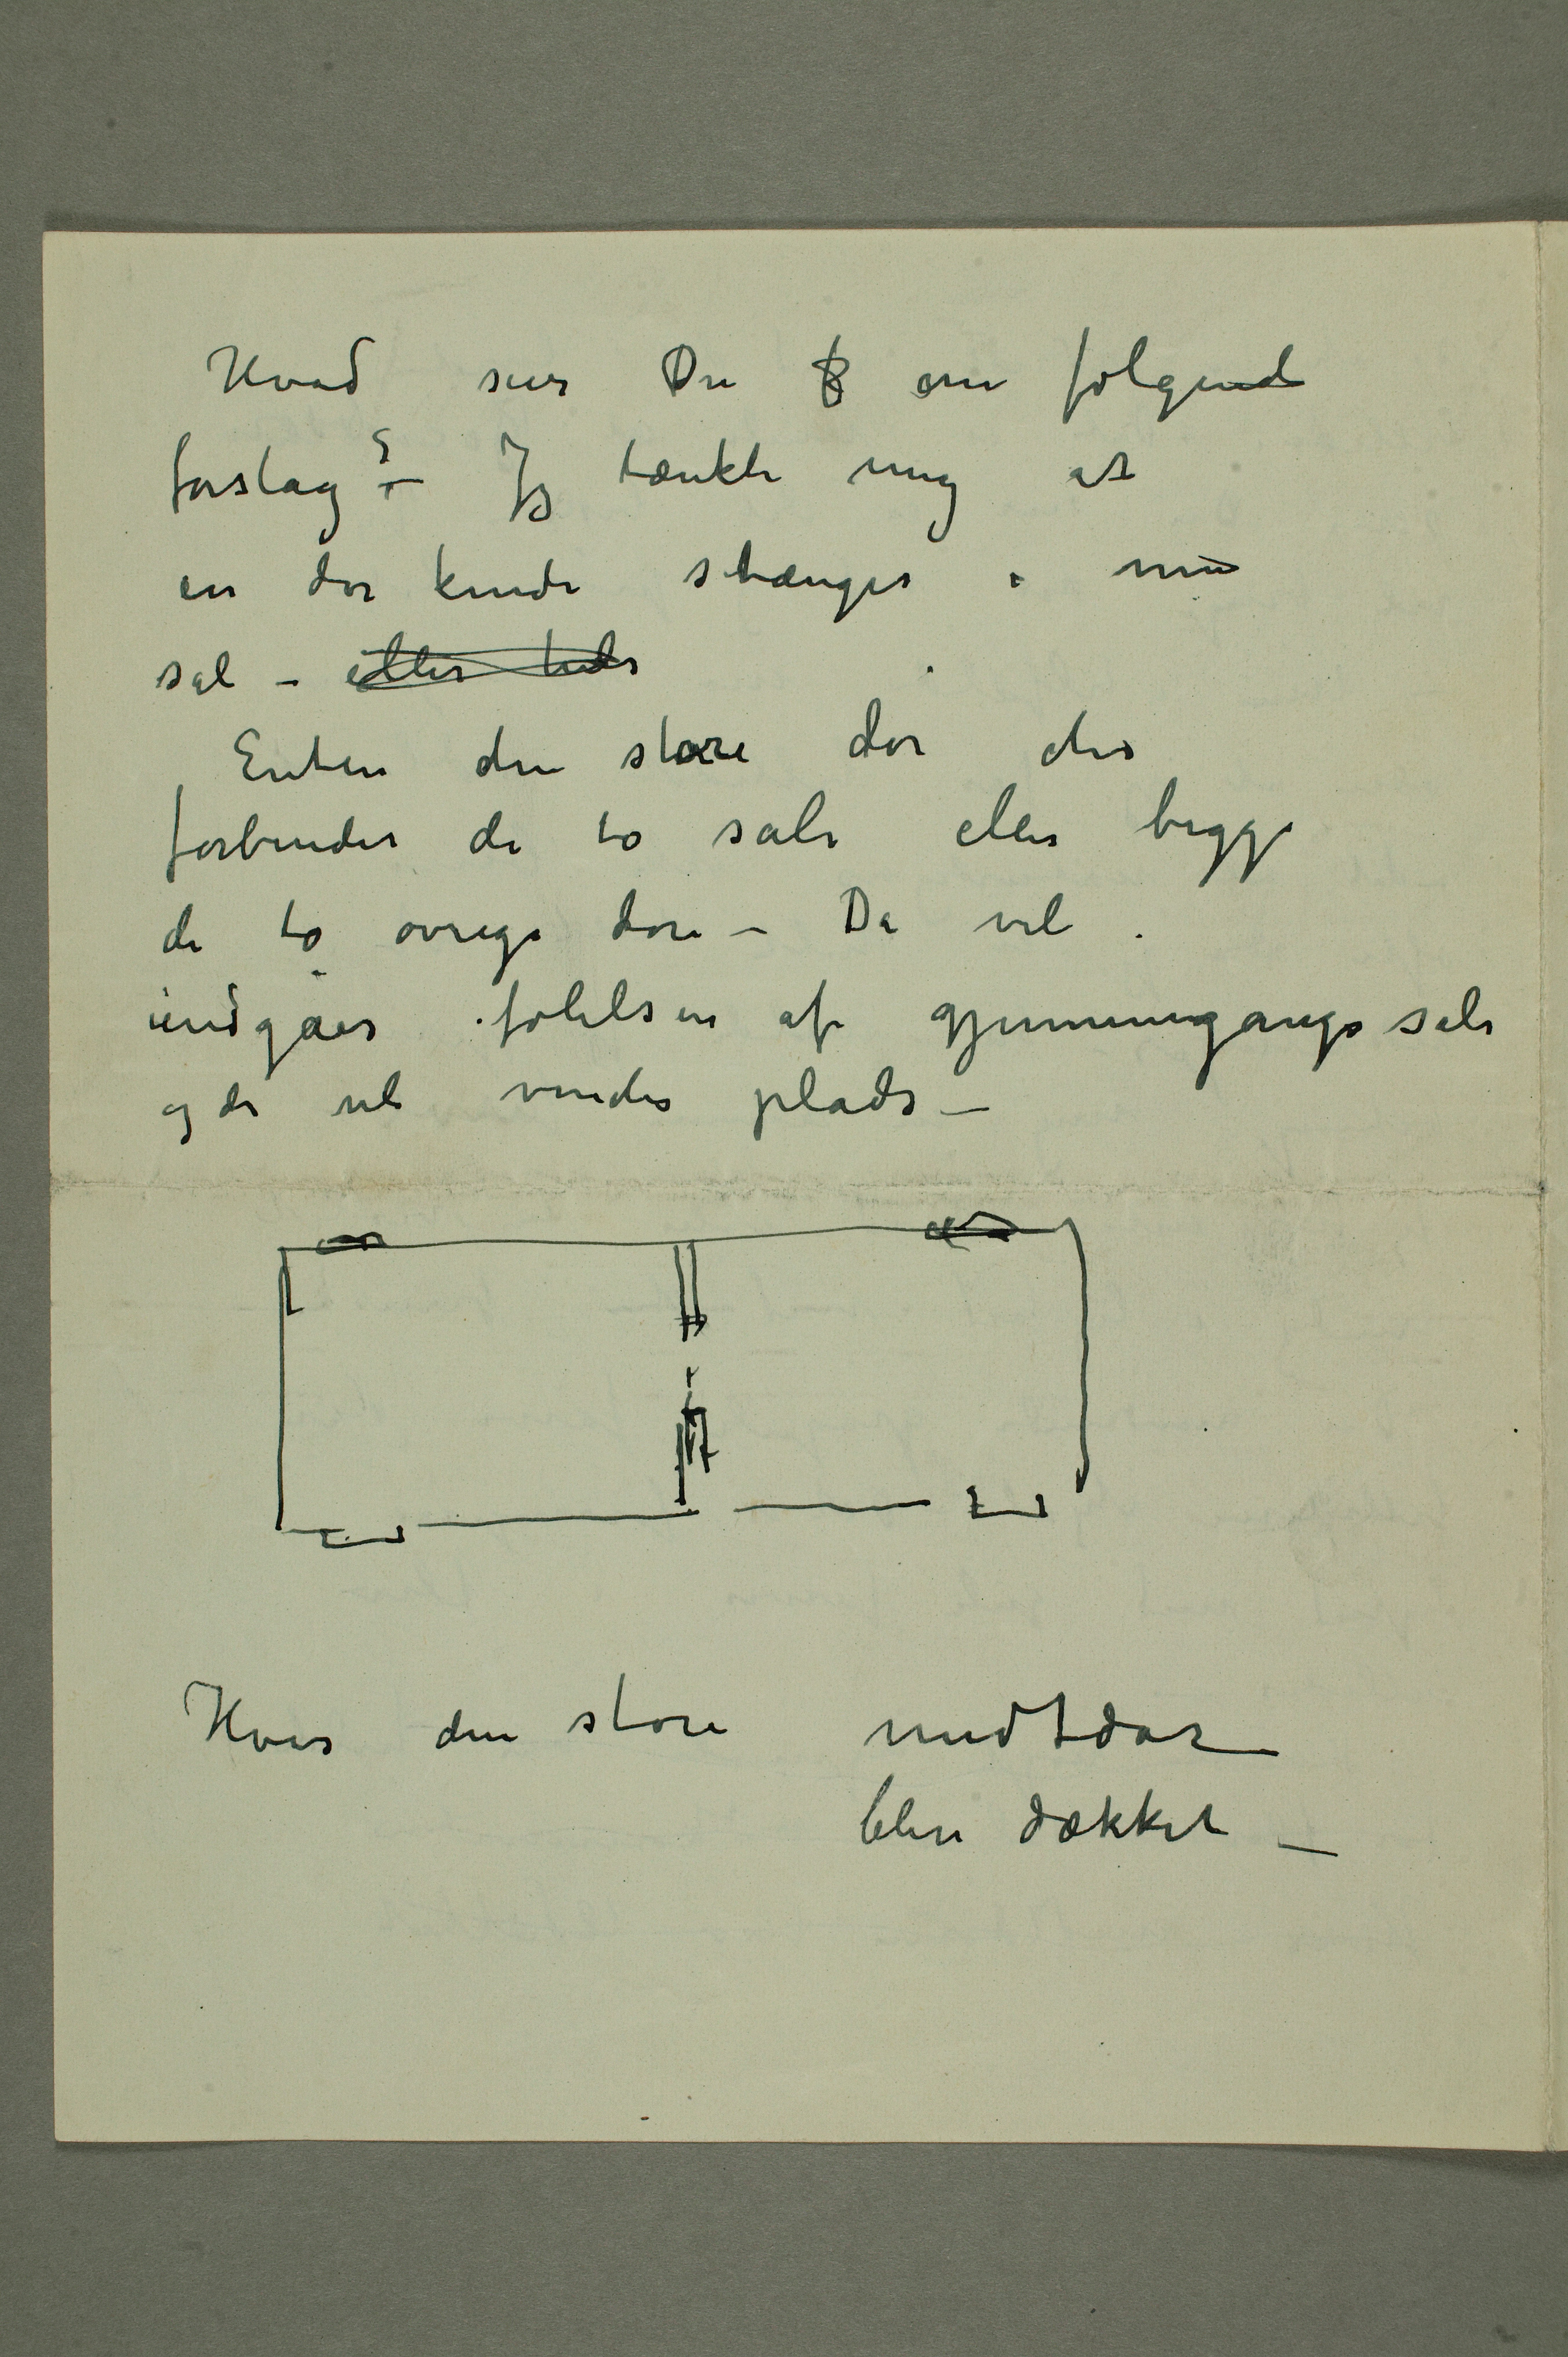 Hvad sier Du om følgende
forslag? – Jeg tænkte mig at
en dør kunde stænges i min
sal – eller hele
Enten den store dør der
forbinder de to sale eller begge
de to øvrige døre – Da vil
undgåes følelsen af gjennemgangs sale
og der vil vindes plads –
Hvis den store midtdør
blev dækket –